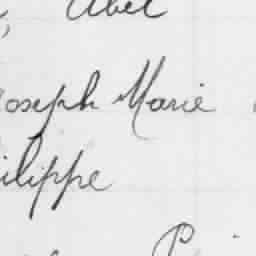 , Abel
Joseph Marie
ilippe